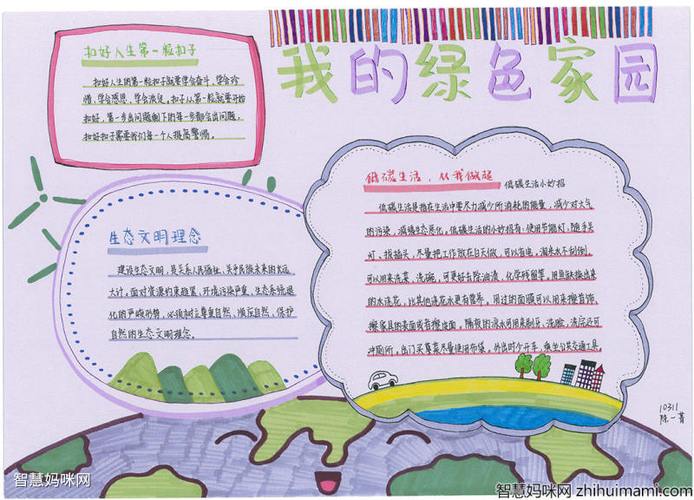 我的绿色家园
扣好人生第一粒扣子
扣好人生的第一粒扣子就要学会奋斗,学会珍
惜,学会感恩,学会淡定。扣子从第一粒就要开始
扣好,第一步出问题剩下的每一步都会出问题,
扣好扣子需要我们每一个人提高警惕。
生态文明理念
建设生态文明,是关系人民福祉,关乎民族未来的长远
大计,面对资源约束趋紧,环境污染严重,生态系统退
化的严峻形势,必须树立尊重自然,顺应自然,保护
自然的生态文明理念。
低碳生活,从我做起 低碳生活小妙招
低碳生活是指在生活中要尽力减少所消耗的能量,减少对大气
的污染,减缓生态恶化。低碳生活的小妙招有:使用节能灯,随手关
灯、拔插头,尽量把工作放在白天做,可以省电,淘米水不倒掉,
可以用来洗菜、洗碗,可更好去除油渍、化学残留等,用鱼缸换出来
的水浇花,比其他浇花水更有营养。用过的面膜可以用来擦首饰、
擦家具的表面或者擦皮面。隔夜的凉水可用来刷牙、洗脸,洗完还可
冲厕所。出门买菜尽量使用布袋,外出时少开车,乘坐公共交通工具。
10311
陈一菁
智慧妈咪网
智慧妈咪网 zhihuimami.com